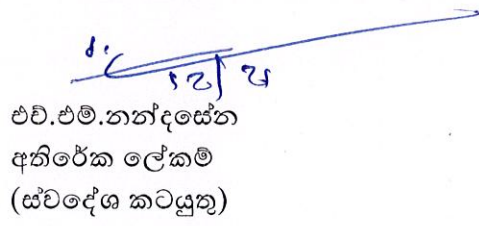 එච්.එම්.නන්දසේන
අතිරේක ලේකම්
(ස්වදේශ කටයුතු)